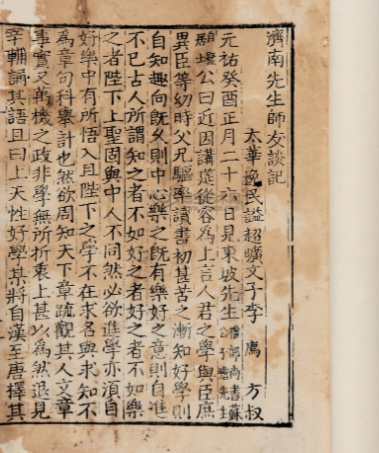 濟南先生師友談記
太華逸民諡超曠文子李 廌 方叔
元祐癸酉正月二十六日見東坡先生禮部尚書蘇公子瞻先生
公曰近因講筵從容為上言人君之學與臣庶
異臣等幼時父兄驅率讀書初甚苦之漸知好學則
自知趣向既久則中心樂之既有樂好之意則自進
不已古人所謂知之者不如好之者好之者不如樂
之者陛下上聖固與中人不同然必欲進學亦須自
好樂中有所悟入且陛下之學不在求名與求知不
為章句科舉計也然欲周知天下章疏觀其人文章
事實又萬機之政非學無所折衷上甚以為然退見
宰輔誦其語且曰上天性好學某將自漢至唐擇其